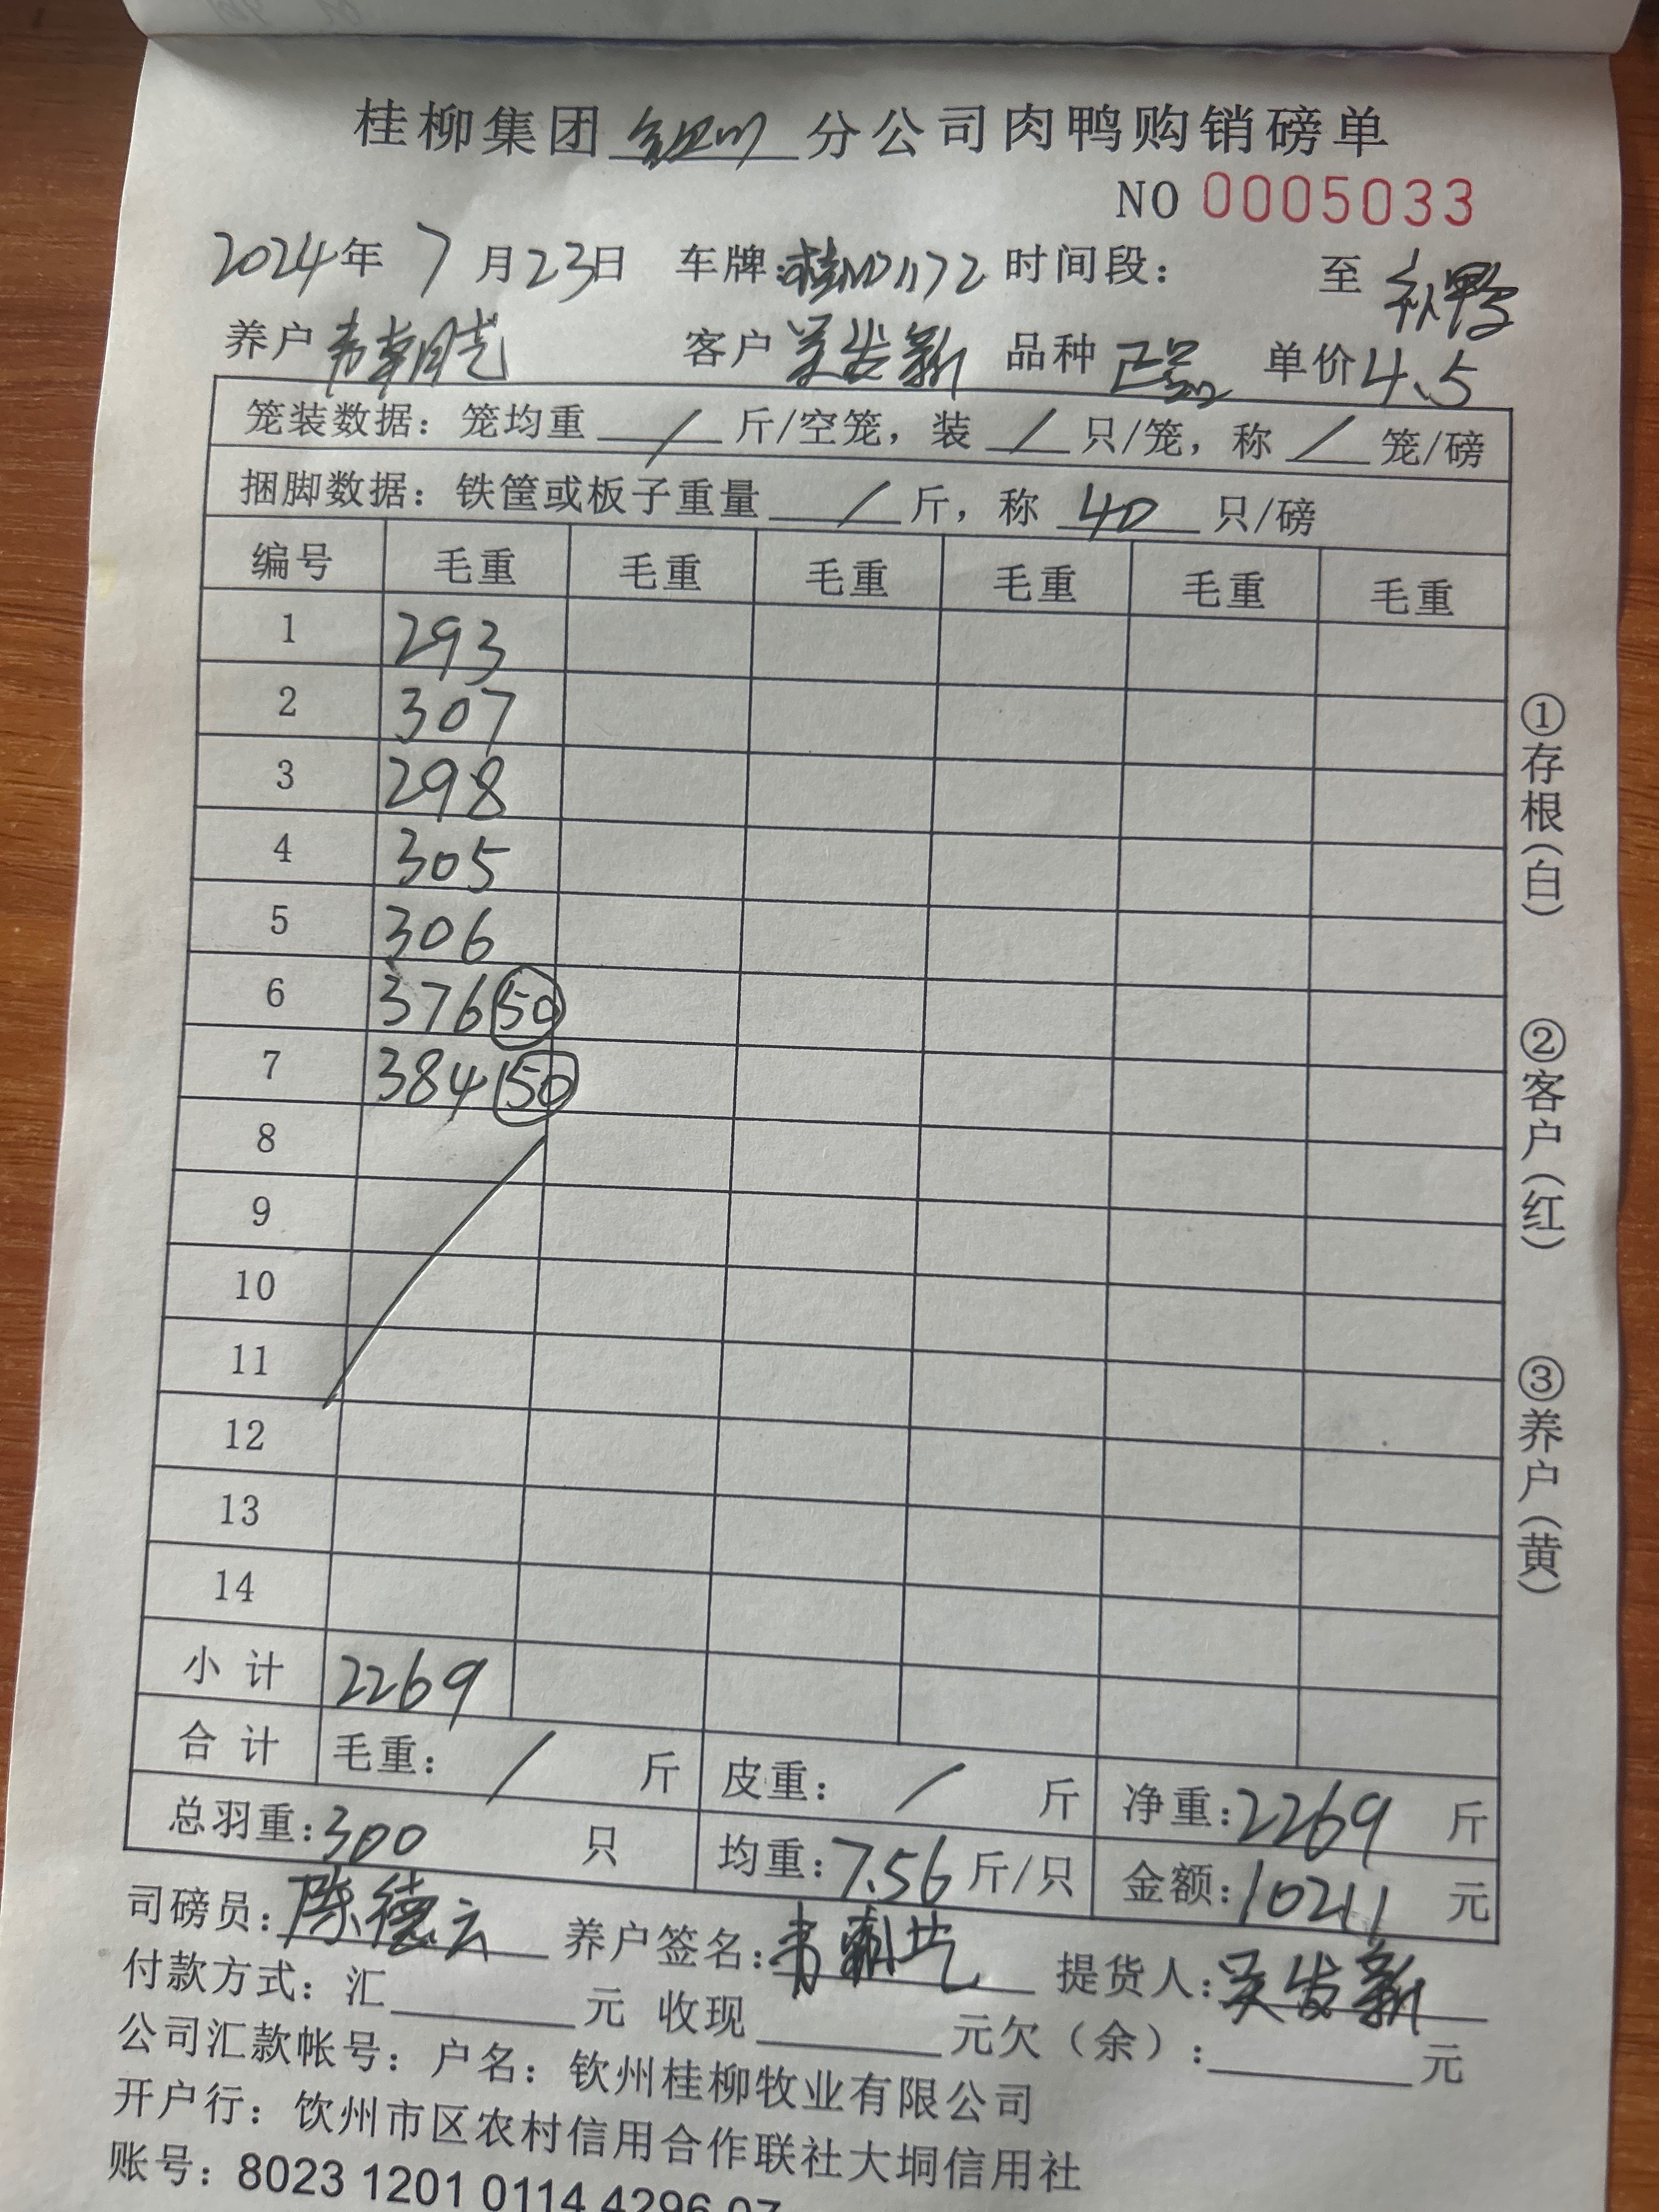 桂柳集团 钦州 分公司肉鸭购销磅单
NO 0005033
2024年 7月23日 车牌: 时间段: 至
养户 韦朝 客户 吴发新 品种 正品 单价 4.5
笼装数据: 笼均重 / 斤/空笼, 装 / 只/笼, 称 / 笼/磅
捆脚数据: 铁筐或板子重量 / 斤, 称 40 只/磅
编号 毛重 毛重 毛重 毛重 毛重 毛重
1 293
2 307
3 298
4 305
5 306
6 376 50
7 384 50
8
9
10
11
12
13
14
小计 2269
合计 毛重: / 斤 皮重: / 斤 净重: 2269 斤
总羽重: 300 只 均重: 7.56 斤/只 金额: 10211 元
司磅员: 陈德云 养户签名: 韦朝 提货人: 吴发新
付款方式: 汇 元 收现 元欠（余）: 元
公司汇款帐号: 户名: 钦州桂柳牧业有限公司
开户行: 饮州市区农村信用合作联社大垌信用社
账号: 8023 1201 0114 4296 07
①存根(白)
②客户(红)
③养户(黄)